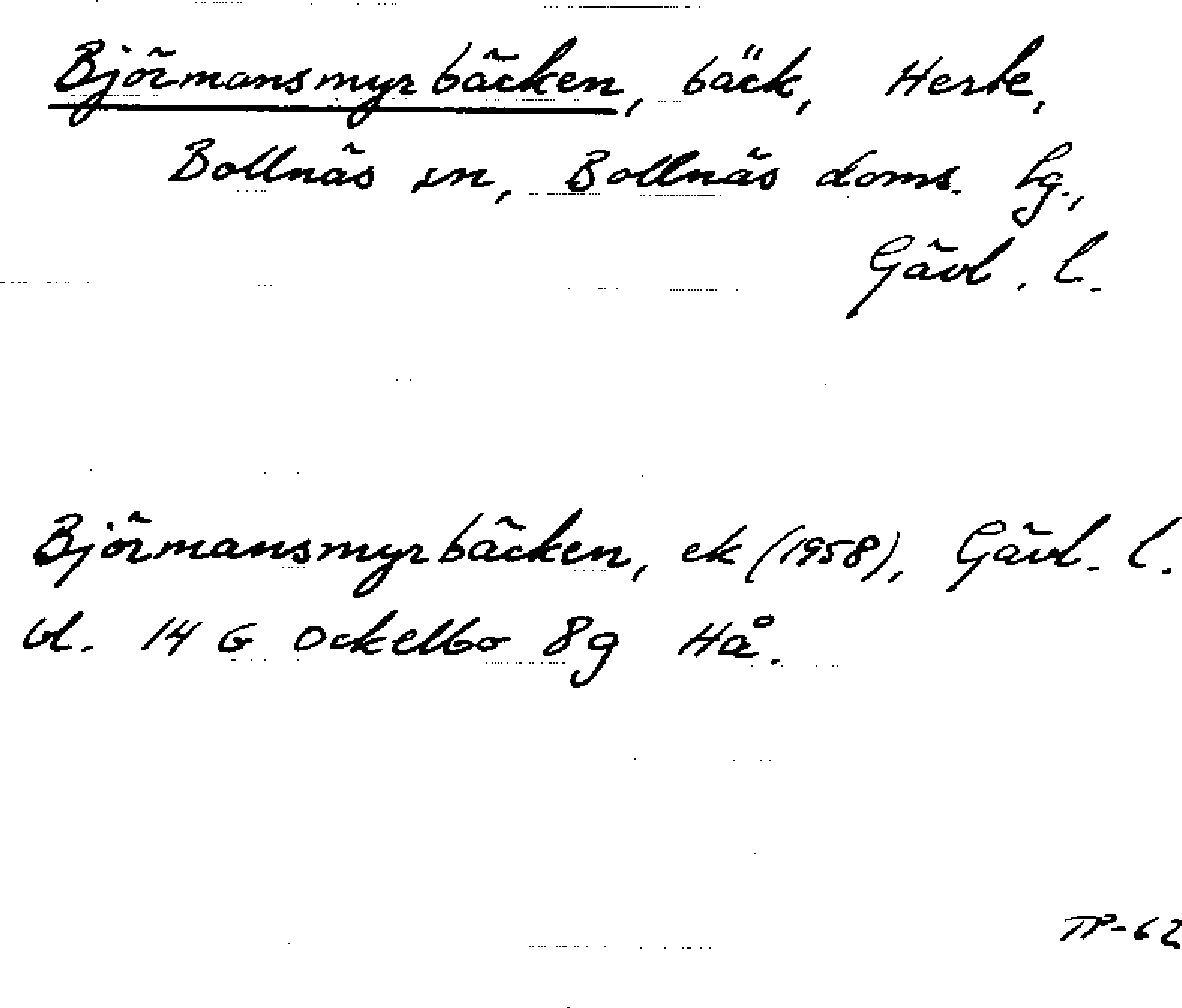 Björmansmyrbäcken, bäck, Herte,
Bollnäs sn, Bollnäs doms. lg.,
Gävl. l.
Björmansmyrbäcken, ek (1958), Gävl. l.
bl. 14 G Ockelbo 8g Hå.
TP-62